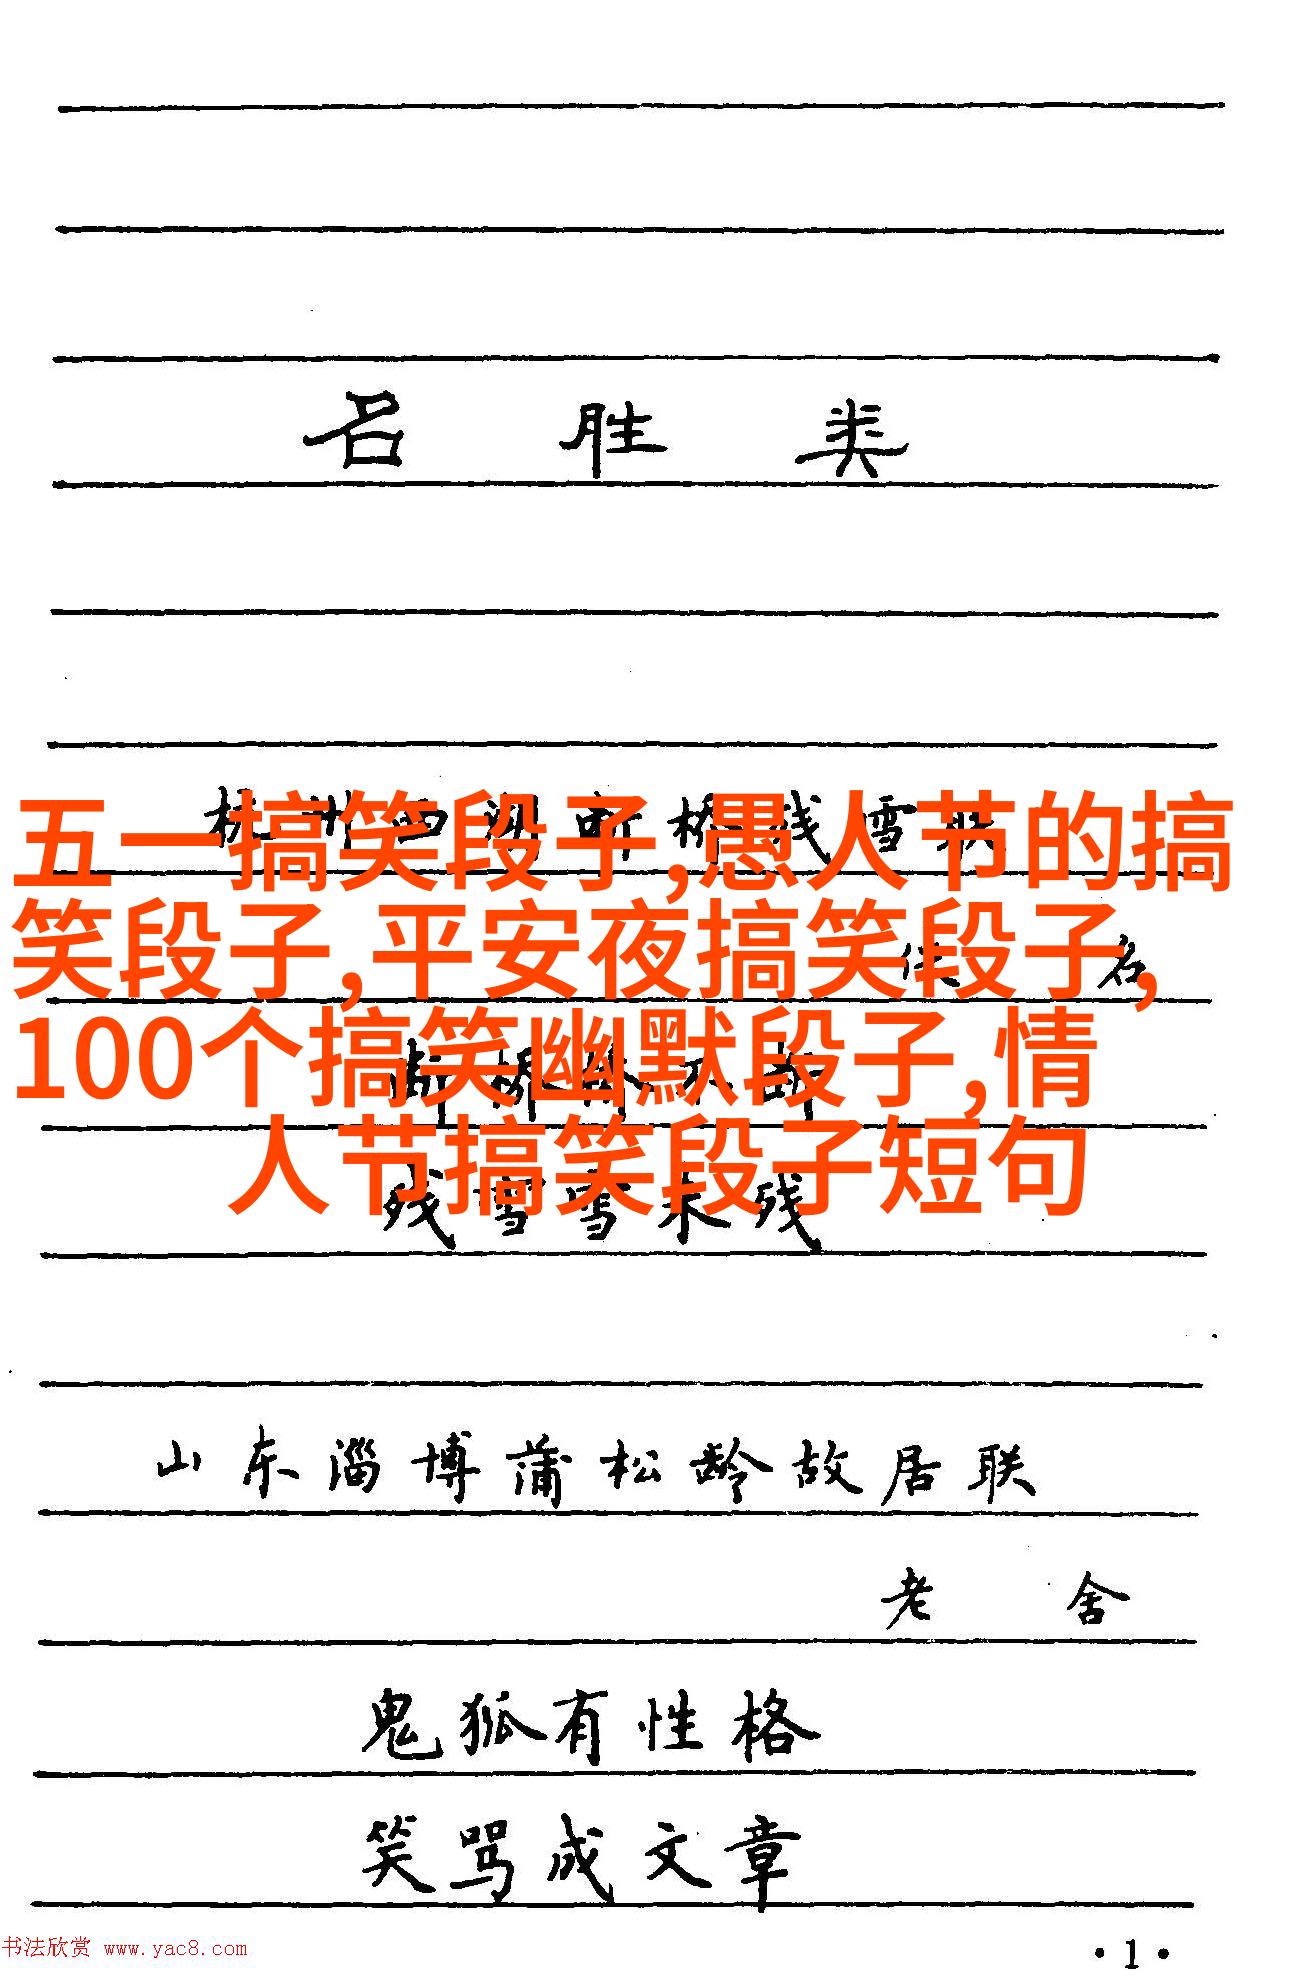 名胜类
杭州西湖断桥残雪联
佚名
断桥桥不断
残雪雪未残
五一搞笑段子,愚人节的搞
笑段子,平安夜搞笑段子,
100个搞笑幽默段子,情
人节搞笑段子短句
山东淄博蒲松龄故居联
老舍
鬼狐有性格
笑骂成文章
书法欣赏 www.yac8.com
·1·